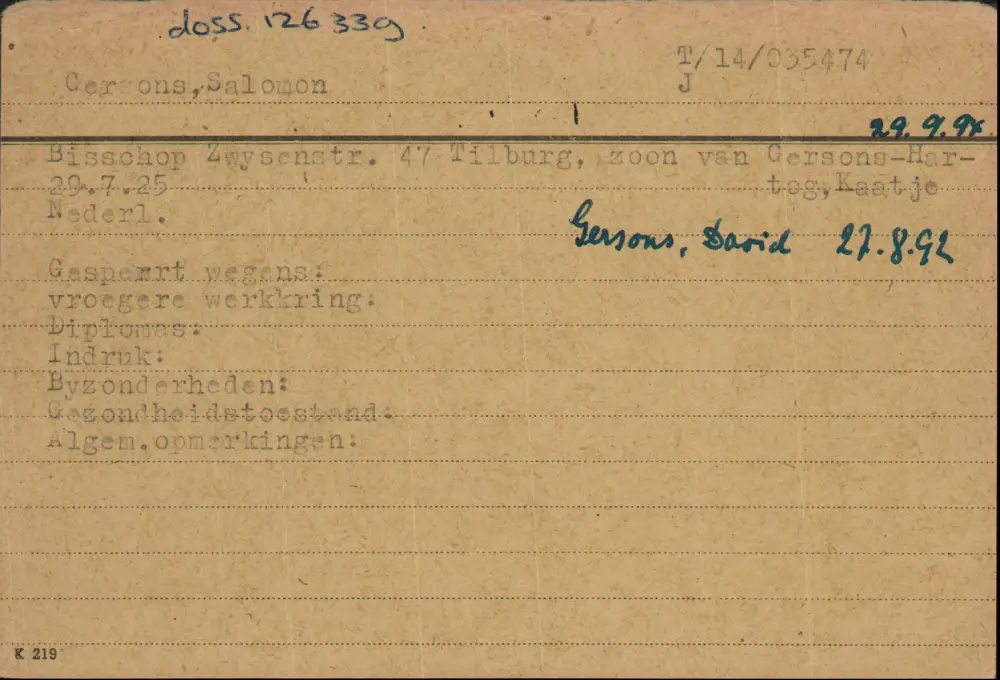 doss. 126339.
T/14/035474
Gersons,Salomon J
29.9.94
Bisschop Zwysenstr. 47 Tilburg, zoon van Gersons-Har-
29.7.25 tog,Kaatje
Nederl.
Gersons, David 27.8.92
Gesperrt wegens:
vroegere werkkring:
Diplomas:
Indruk:
Byzonderheden:
Gezondheidstoestand:
Algem.opmerkingen:
K 219